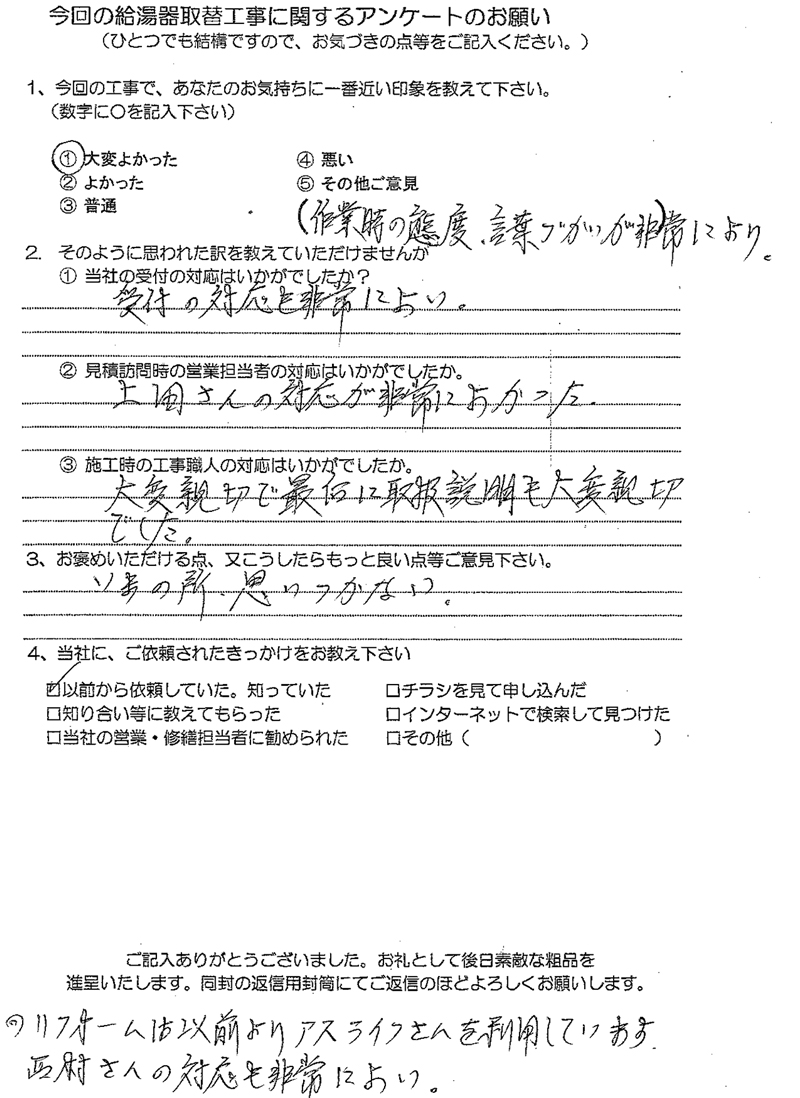 今回の給湯器取替工事に関するアンケートのお願い
（ひとつでも結構ですので、お気づきの点等をご記入ください。）
1、今回の工事で、あなたのお気持ちに一番近い印象を教えて下さい。
（数字に〇を記入下さい）
① 大変よかった
② よかった
③ 普通
④ 悪い
⑤ その他ご意見
(作業時の態度、言葉づかいが非常により。
2. そのように思われた訳を教えていただけませんか
① 当社の受付の対応はいかがでしたか？
受付の対応も非常によい。
② 見積訪問時の営業担当者の対応はいかがでしたか。
上田さんの対応が非常によかった。
③ 施工時の工事職人の対応はいかがでしたか。
大変親切で最后に取扱説明も大変親切
でした。
3、お褒めいただける点、又こうしたらもっと良い点等ご意見下さい。
いまの所、思いつかない。
4、当社に、ご依頼されたきっかけをお教え下さい
☑以前から依頼していた。知っていた
□知り合い等に教えてもらった
□当社の営業・修繕担当者に勧められた
□チラシを見て申し込んだ
□インターネットで検索して見つけた
□その他（　　　　　　　　　　）
ご記入ありがとうございました。お礼として後日素敵な粗品を
進呈いたします。同封の返信用封筒にてご返信のほどよろしくお願いします。
リフォームは以前よりアスライクさんを利用しています
西村さんの対応も非常によい。